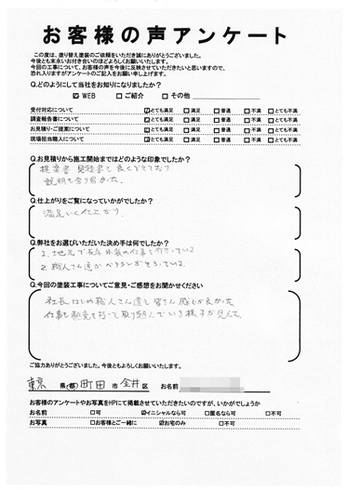 お客様の声アンケート
この度は、塗り替え塗装のご依頼をいただき誠にありがとうございました。
今後とも末永いお付き合いのほどよろしくお願いいたします。
今回の工事について、お客様の声を今後に反映させていただきたいと思いますので、
恐れ入りますがアンケートのご記入をお願い申し上げます。
Q.どのようにして当社をお知りになりましたか?
☑WEB □ご紹介 □その他
受付対応について ☑とても満足 □満足 □普通 □不満 □とても不満
調査報告書について ☑とても満足 □満足 □普通 □不満 □とても不満
お見積り・ご提案について ☑とても満足 □満足 □普通 □不満 □とても不満
現場担当職人について ☑とても満足 □満足 □普通 □不満 □とても不満
Q.お見積りから施工開始まではどのような印象でしたか?
提案書 見積書と良くできており
説明も分り易かった。
Q.仕上がりをご覧になっていかがでしたか?
満足いく仕上がり
Q.弊社をお選びいただいた決め手は何でしたか?
1. 地元で長年外装の仕事を行っている
2. 職人さん達がベテランがそろっている
Q.今回の塗装工事についてご意見・ご感想をお聞かせください
社長はじめ職人さん達も皆さん感じが良かった
仕事も熱意を持って取り組んでいる様子が見えた。
ご協力ありがとうございました。今後ともよろしくお願いいたします。
東京 県(都) 町田 市 金井 区 お名前
お客様のアンケートやお写真をHPに掲載させていただきたいのですが、いかがでしょうか
お名前 □可 ☑イニシャルなら可 □匿名なら可 □不可
お写真 □お客様とご一緒に ☑お宅のみ □不可